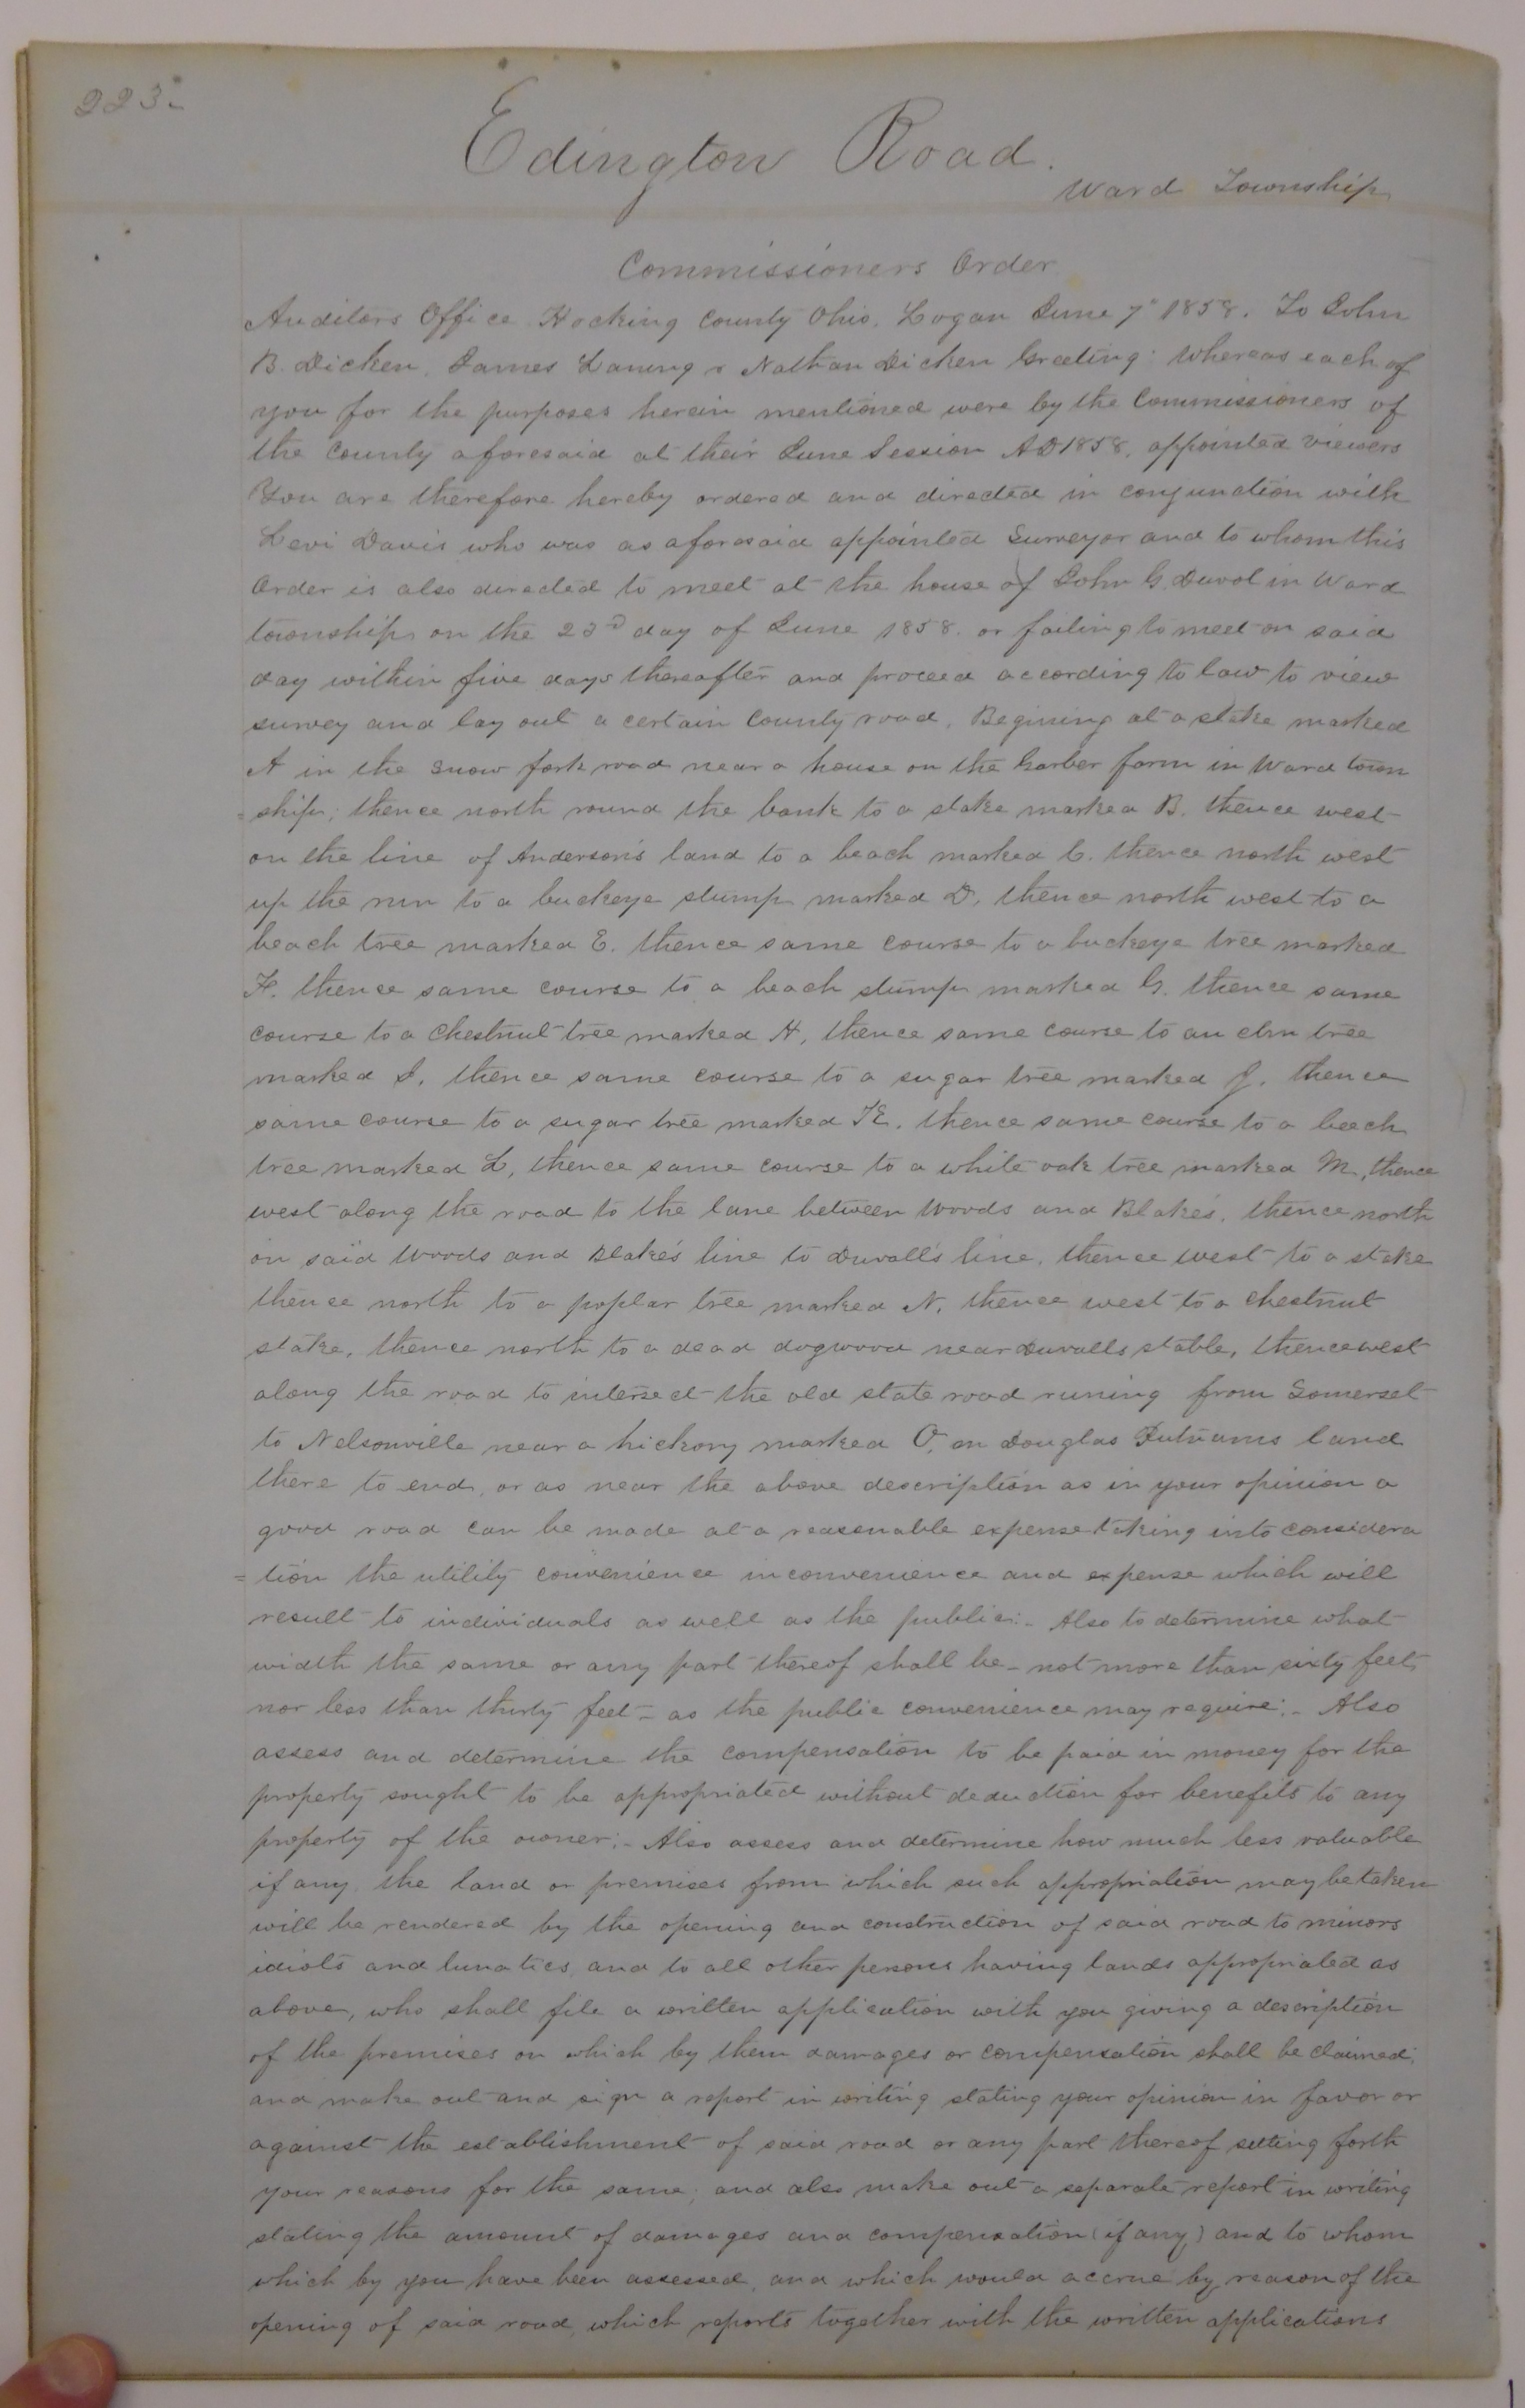 223-
Edington Road.
Ward Township
Commissioners Order
Auditors Office Hocking County Ohio. Logan June 7" 1858. To John
B. Dicken, James Laning & Nathan Dicken Greeting: Whereas each of
you for the purposes herein mentioned were by the Commissioners of
the County aforesaid at their June Session AD 1858. appointed viewers
You are therefore hereby ordered and directed in conjunction with
Levi Davis who was as aforesaid appointed Surveyor and to whom this
Order is also directed to meet at the house of John G. Duvol in Ward
township on the 23d day of June 1858. or failing to meet on said
day within five days thereafter and proceed according to law to view
survey and lay out a certain County road. Begining at a stake marked
A in the Snow fork road near a house on the Garber farm in Ward town
=ship; thence north round the bank to a stake marked B. thence west
on the line of Anderson's land to a beach marked C. thence north west
up the run to a buckeye stump marked D. thence north west to a
beach tree marked E. thence same course to a buckeye tree marked
F. thence same course to a beach stump marked G. thence same
course to a Chestnut tree marked H, thence same course to an elm tree
marked I. thence same course to a sugar tree marked J. thence
same course to a sugar tree marked K. thence same course to a beech
tree marked L, thence same course to a white oak tree marked M, thence
west along the road to the lane between Woods and Blake's, thence north
on said Woods and Blake's line to Duvall's line, thence west to a stake
thence north to a poplar tree marked N. thence west to a Chestnut
stake, thence north to a dead dogwood near Duvalls stable, thence west
along the road to intersect the old state road runing from Somerset
to Nelsonville near a hickory marked O, on Douglas Putnams land
there to end, or as near the above description as in your opinion a
good road can be made at a reasonable expense taking into considera
=tion the utility convenience inconvenience and expense which will
result to individuals as well as the public:- Also to determine what
width the same or any part thereof shall be - not more than sixty feet
nor less than thirty feet - as the public convenience may require:- Also
assess and determine the compensation to be paid in money for the
property sought to be appropriated without deduction for benefits to any
property of the owner:- Also assess and determine how much less valuable
if any, the land or premises from which such appropriation may be taken
will be rendered by the opening and construction of said road to minors
idiots and lunatics, and to all other persons having lands appropriated as
above, who shall file a written application with you giving a description
of the premises on which by them damages or compensation shall be claimed;
and make out and sign a report in writing stating your opinion in favor or
against the establishment of said road or any part thereof setting forth
your reasons for the same; and also make out a separate report in writing
stating the amount of damages and compensation (if any) and to whom
which by you have been assessed, and which would accrue by reason of the
opening of said road, which reports together with the written applications